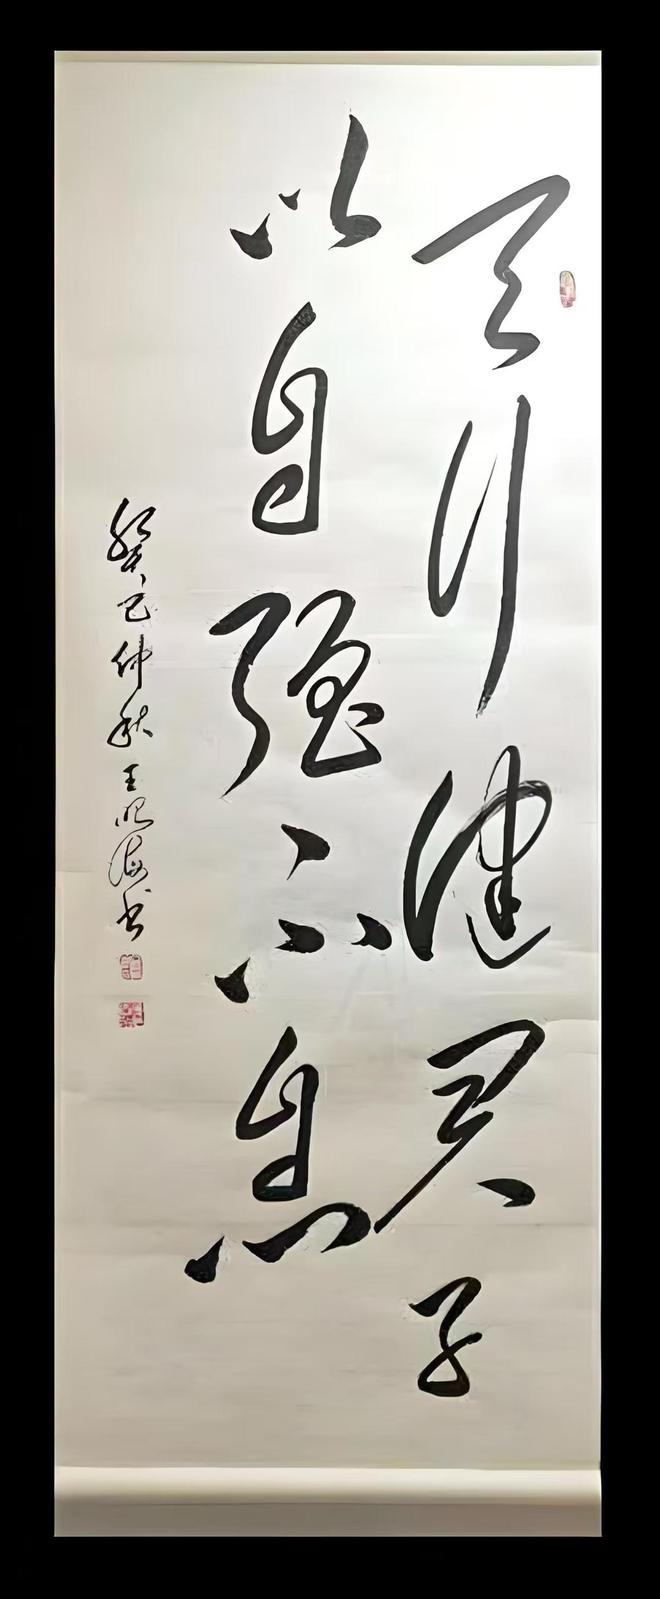 天行健君子
以自强不息
癸巳仲秋王明海书